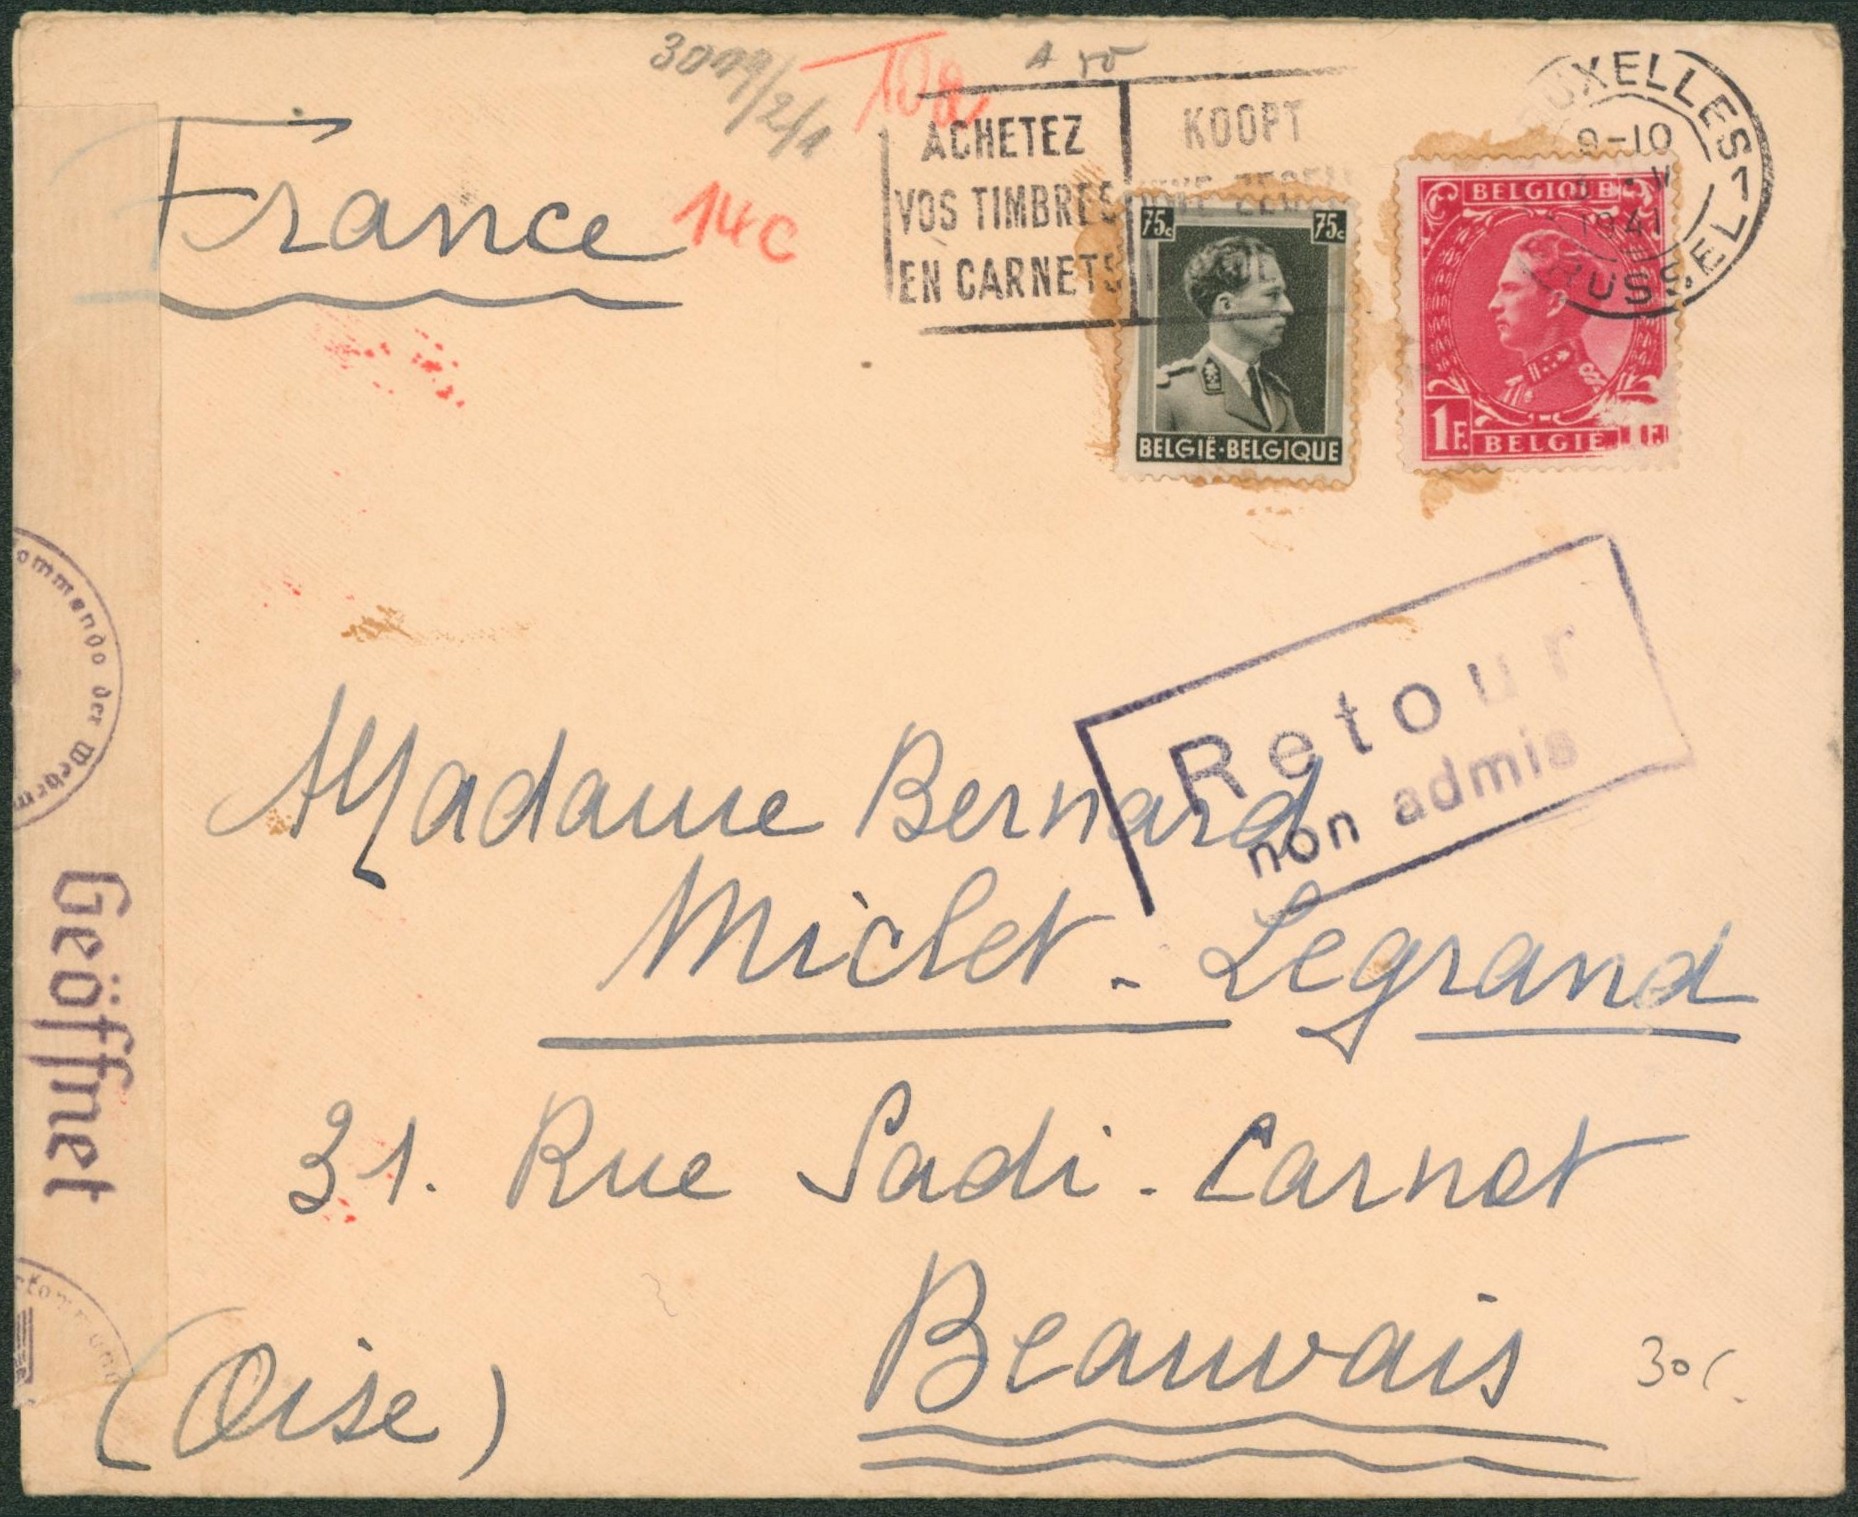 3099/2/1
A 50
France
14c
ACHETEZ
VOS TIMBRES
EN CARNETS
KOOPT
UXELLES-1
9-10
V
1941
RUSSEL-
75c 75c
BELGIË·BELGIQUE
BELGIQUE
1F.
BELGIË 1F.
Retour
non admis
Madame Bernard
Miclet - Legrand
31. Rue Sadi-Carnot
Beauvais
(Oise)
30c
ommando der Wehrm
Geöffnet